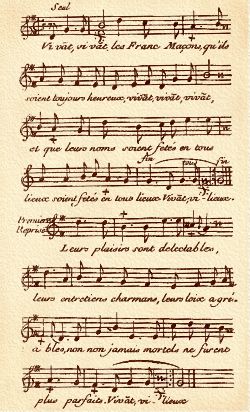 Seul
Vivât, vivât, les Franc Maçons, qu'ils
soient toujours heureux, vivât, vivât, vivât,
et que leurs noms soient fetés en tous
fin tous fin
lieux soient fetés en tous lieux Vivât, vi-lieux.
Premiere
Reprise
Leurs plaisirs sont delectables,
leurs entretiens charmans, leurs loix agré-
a bles, non non jamais mortels ne furent
plus parfaits. Vivât, vi-lieux